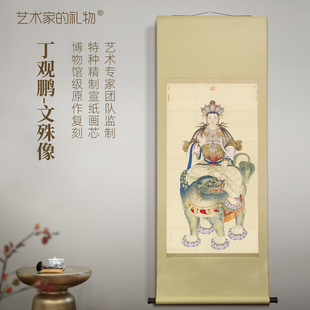 艺术家的礼物®
丁观鹏-文殊像
艺术专家团队监制
特种精制宣纸画芯
博物馆级原作复刻